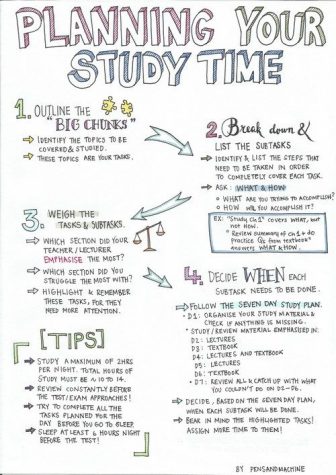 PLANNING YOUR
STUDY TIME
1. OUTLINE THE
"BIG CHUNKS"
→ IDENTIFY THE TOPICS TO BE
COVERED & STUDIED.
→ THESE TOPICS ARE YOUR TASKS.
2. Break down &
LIST THE SUBTASKS
→ IDENTIFY & LIST THE STEPS THAT
NEED TO BE TAKEN IN ORDER
TO COMPLETELY COVER EACH TASK.
→ ASK: WHAT & HOW
• WHAT ARE YOU TRYING TO ACCOMPLISH?
• HOW WILL YOU ACCOMPLISH IT?
EX: "Study Ch.1" COVERS WHAT, BUT
NOT HOW.
"Review summary of Ch 1 & do
Practice Qs from textbook"
ANSWERS WHAT & HOW.
3. WEIGH THE
TASKS & SUBTASKS.
→ WHICH SECTION DID YOUR
TEACHER/LECTURER
EMPHASISE THE MOST?
→ WHICH SECTION DID YOU
STRUGGLE THE MOST WITH?
→ HIGHLIGHT & REMEMBER
THESE TASKS, FOR THEY
NEED MORE ATTENTION.
4. DECIDE WHEN EACH
SUBTASK NEEDS TO BE DONE.
→ FOLLOW THE SEVEN DAY STUDY PLAN.
• D1: ORGANISE YOUR STUDY MATERIAL &
CHECK IF ANYTHING IS MISSING.
• STUDY/REVIEW MATERIAL EMPHASISED IN:
D2: LECTURES
D3: TEXTBOOK
D4: LECTURES AND TEXTBOOK
D5: LECTURES
D6: TEXTBOOK
• D7: REVIEW ALL & CATCH UP WITH WHAT
YOU COULDN'T DO ON D2-D6.
→ DECIDE, BASED ON THE SEVEN DAY PLAN,
WHEN EACH SUBTASK WILL BE DONE.
→ BEAR IN MIND THE HIGHLIGHTED TASKS!
ASSIGN MORE TIME TO THEM!
[TIPS]
→ STUDY A MAXIMUM OF 2HRS
PER NIGHT. TOTAL HOURS OF
STUDY MUST BE ~ 10 TO 14.
→ REVIEW CONSTANTLY BEFORE
THE TEST/EXAM APPROACHES!
→ TRY TO COMPLETE ALL THE
TASKS PLANNED FOR THE
DAY BEFORE YOU GO TO SLEEP.
→ SLEEP AT LEAST 6 HOURS NIGHT
BEFORE THE TEST!
BY PENSANDMACHINE